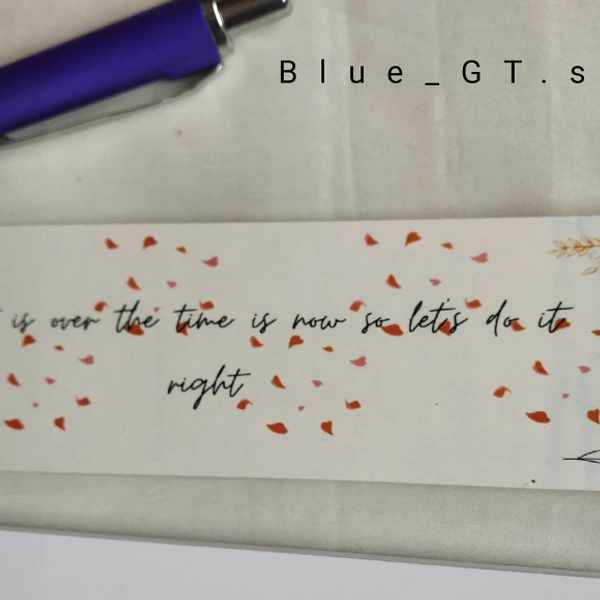 Blue_GT.s
is over the time is now so let's do it
right